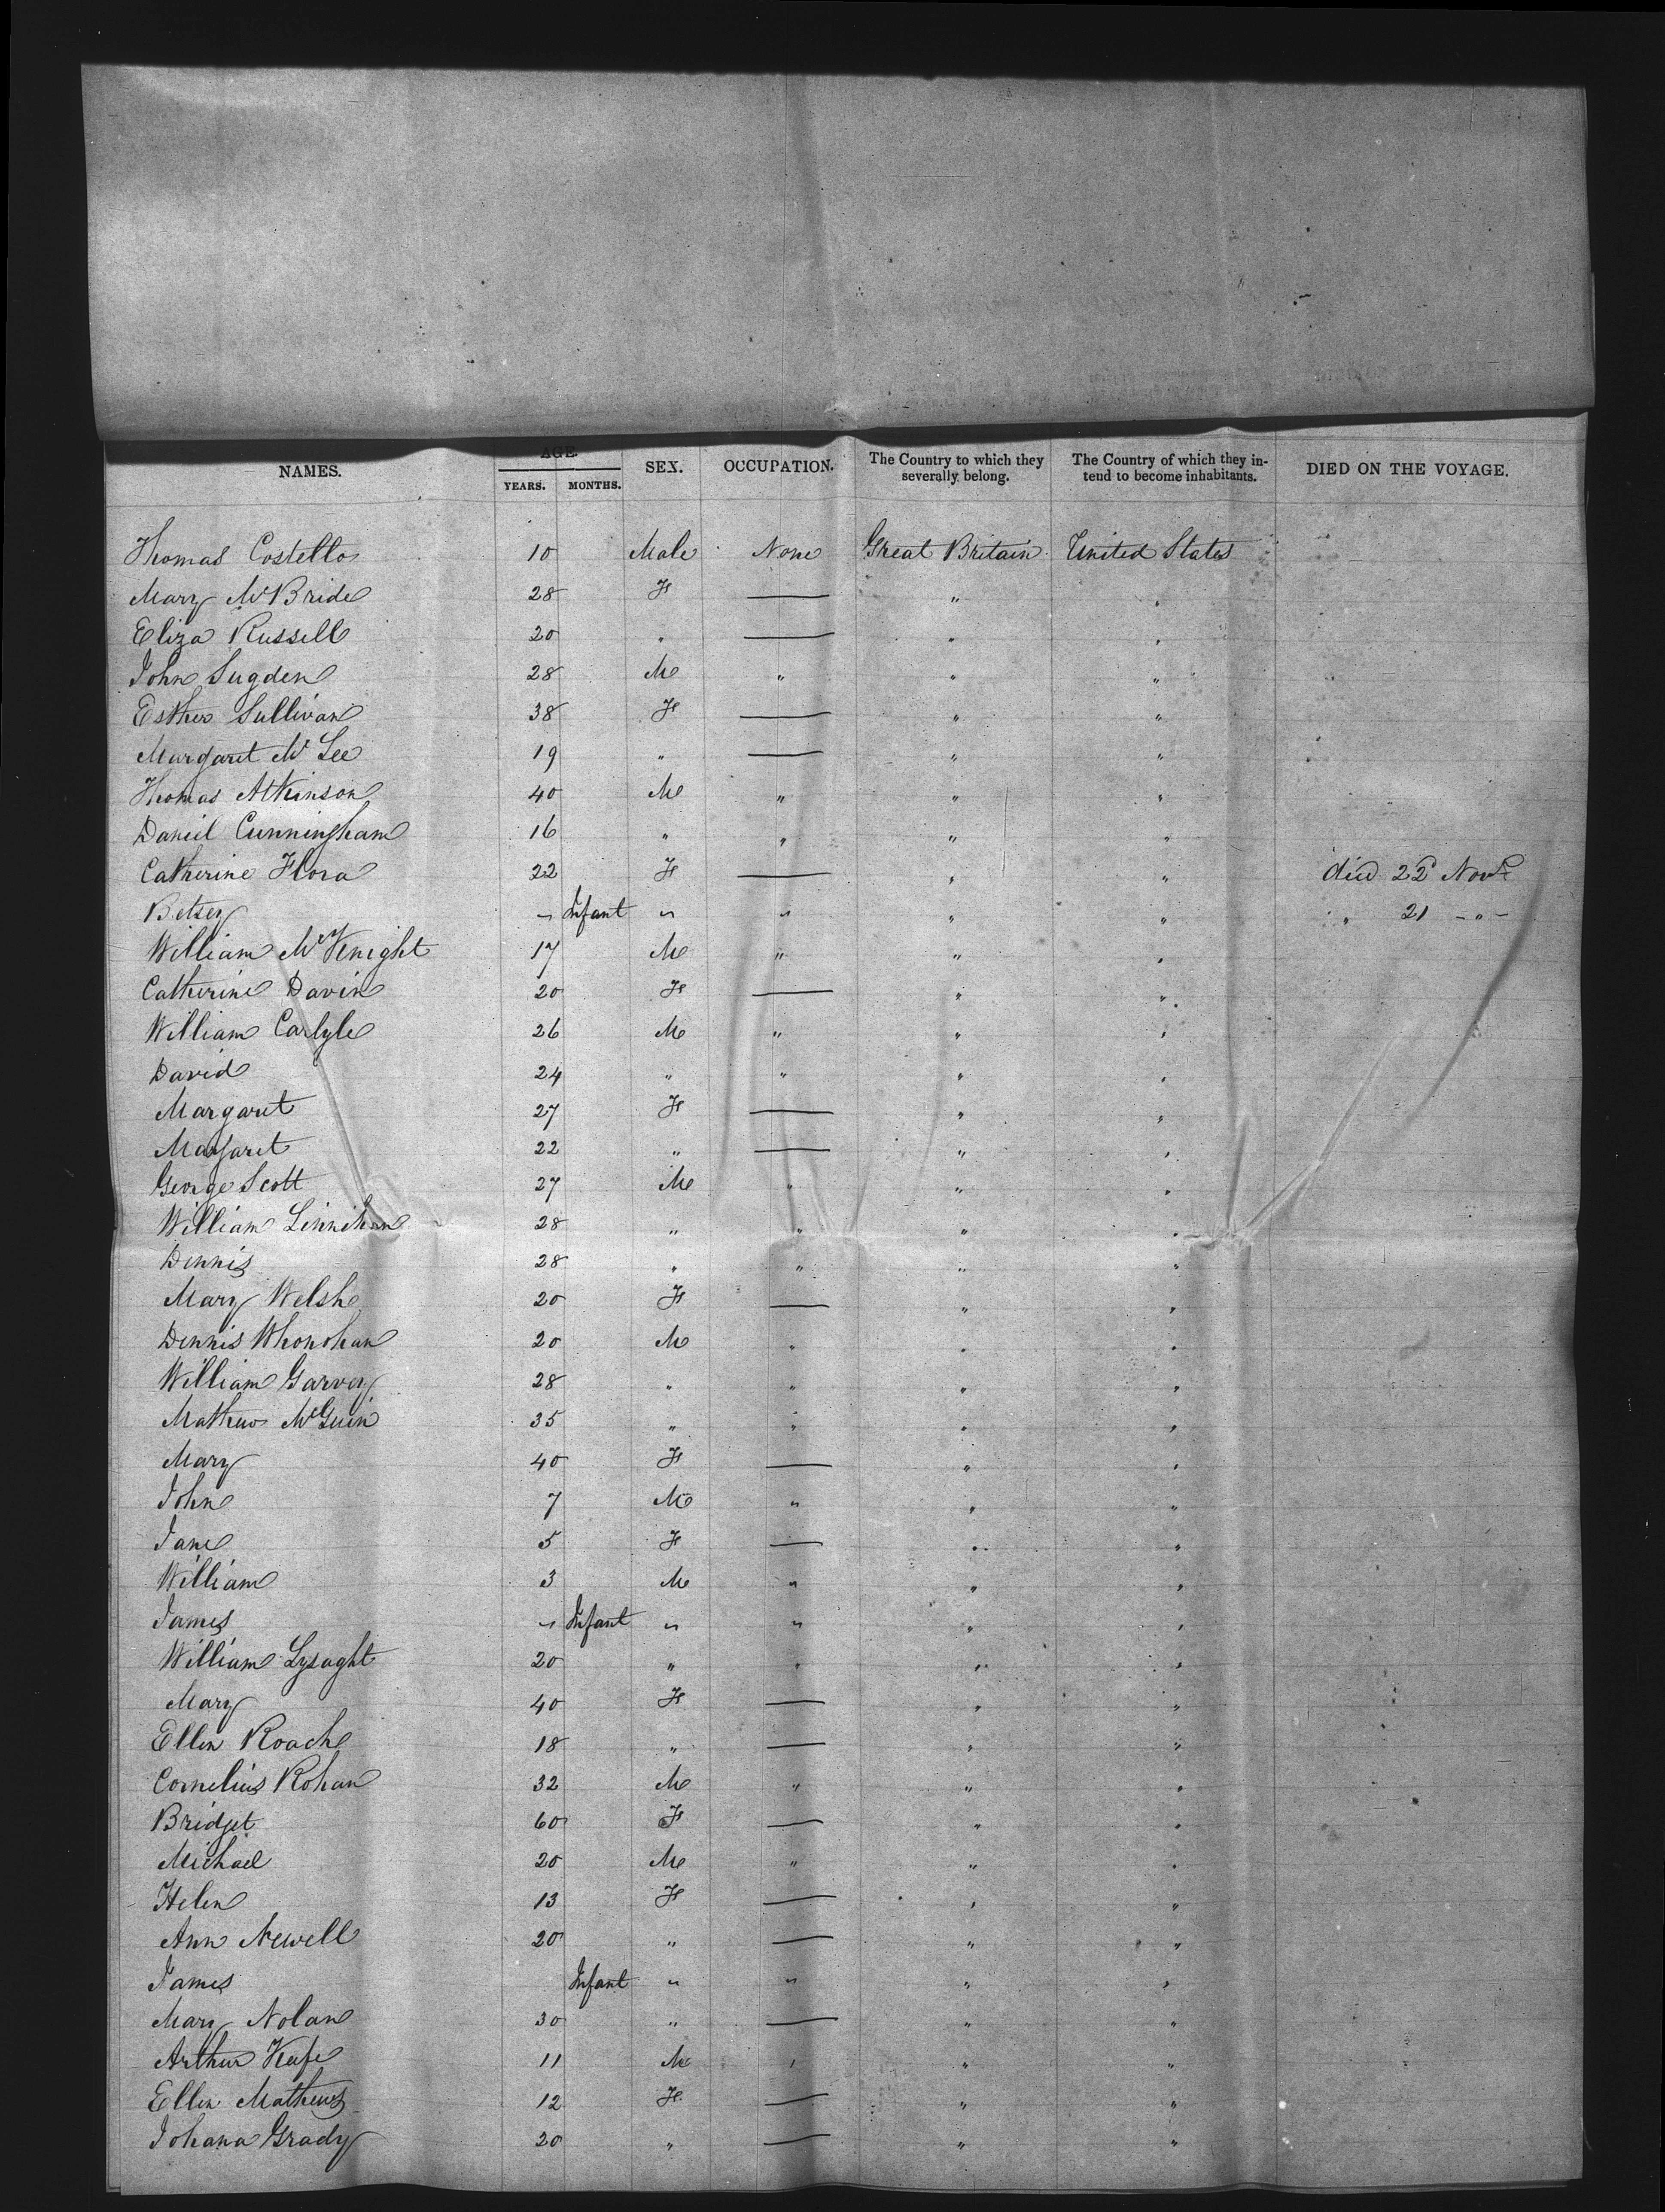 NAMES. AGE. SEX. OCCUPATION. The Country to which they severally belong. The Country of which they intend to become inhabitants. DIED ON THE VOYAGE.
YEARS. MONTHS.
Thomas Costello 10 Male None Great Britain United States
Mary McBride 28 F — " "
Eliza Russell 20 " — " "
John Sugden 28 M " " "
Esther Sullivan 38 F — " "
Margaret McLee 19 " — " "
Thomas Atkinson 40 M " " "
Daniel Cunningham 16 " " " "
Catherine Flora 22 F — " " died 22d Novr
Betsey " Infant " " " " " 21 - " -
William McKnight 17 M " " "
Catherine Davin 20 F — " "
William Carlyle 26 M " " "
David 24 " " " "
Margaret 27 F — " "
Margaret 22 " — " "
George Scott 27 M " " "
William Linnihan 28 " " " "
Dennis 28 " " " "
Mary Welsh 20 F — " "
Dennis Whonohan 20 M " " "
William Garvey 28 " " " "
Mathew McGuin 35 " " " "
Mary 40 F — " "
John 7 M " " "
Jane 5 F — " "
William 3 M " " "
James " Infant " " " "
William Lysaght 20 " " " "
Mary 40 F — " "
Ellen Roach 18 " — " "
Cornelius Rohan 32 M " " "
Bridget 60 F — " "
Michael 20 M " " "
Helen 13 F — " "
Ann Newell 20 " — " "
James Infant " " " "
Mary Nolan 30 " — " "
Arthur Keefe 11 M " " "
Ellen Mathews 12 F — " "
Johana Grady 20 " — " "